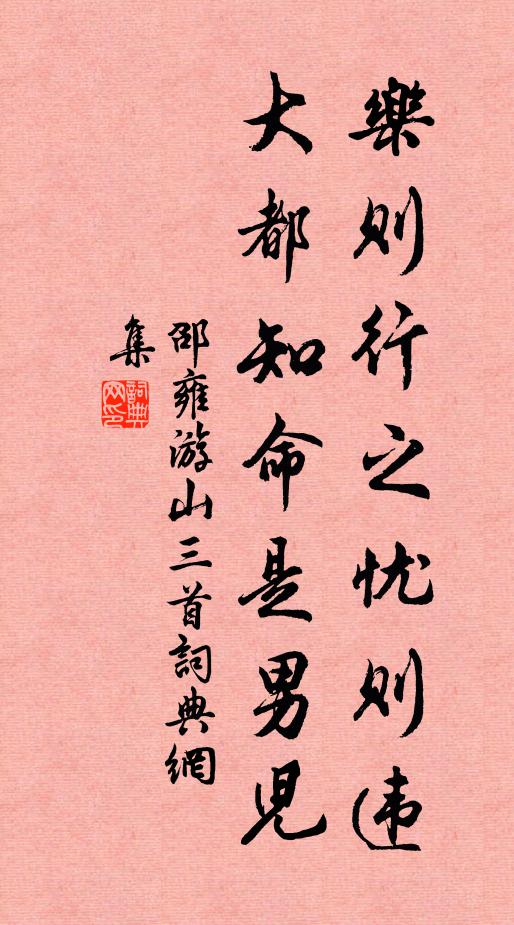 樂則行之忧則违
大都知命是男兒
邵雍游山三首詞典網
集
詞典網印